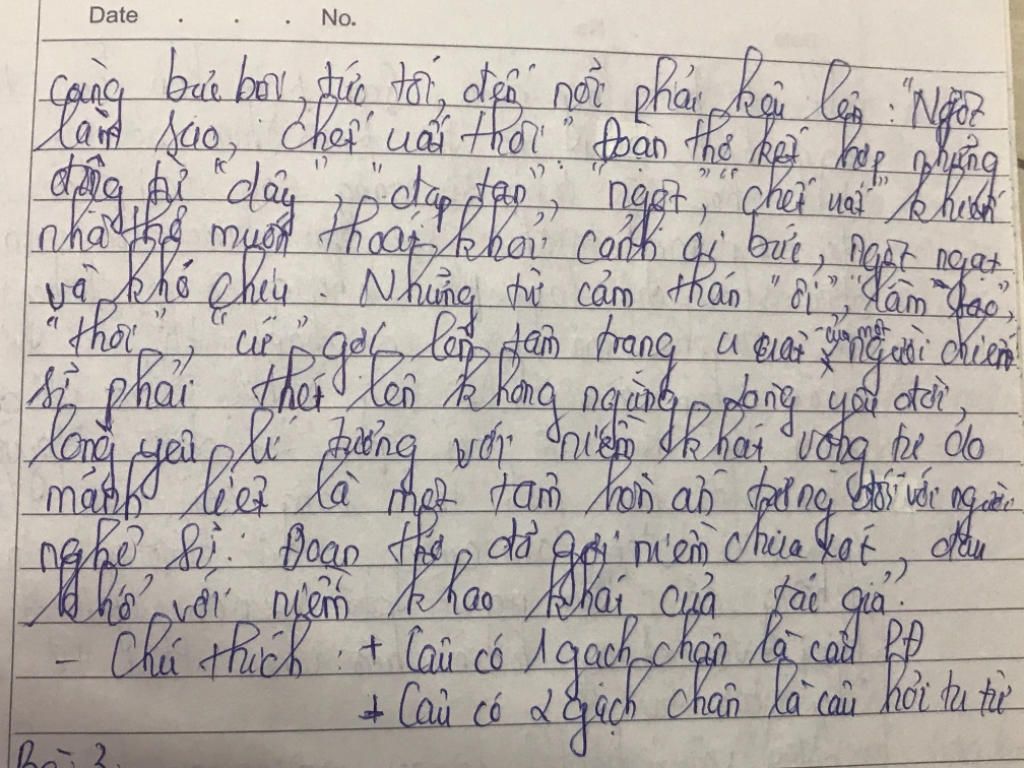 Date . . . No.
càng bức bối, tức tối, đến nỗi phải kêu lên: "Ngột
làm sao, chết uất thôi" Đoạn thơ kết hợp những
động từ "dậy", "đạp tan", "ngột", "chết uất" khiến
nhà thơ muốn thoát khỏi cảnh bức, ngột ngạt
và khó chịu. Những từ cảm thán "ôi", "làm sao",
"thôi", "cứ" gợi lên tâm trạng u uất của một người chiến
sĩ phải thét lên không ngừng. Lòng yêu đời,
lòng yêu lí tưởng với niềm khát vọng tự do
mãnh liệt là một tâm hồn ấn tượng đối với người
nghệ sĩ. Đoạn thơ đã gợi niềm chua xót, đau
khổ với niềm khao khát của tác giả.
- Chú thích: + Câu có 1 gạch chân là câu PĐ
+ Câu có 2 gạch chân là câu hỏi tu từ
Bài 3